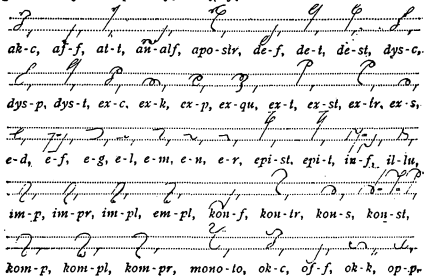 ak-c, af-f, at-t, an-alf, apo-str, de-f, de-t, de-st, dys-c,
dys-p, dys-t, ex-c. ex-k, ex-p, ex-qu, ex-t, ex-st, ex-tr, ex-s,
e-d, e-f, e-g, e-l, e-m, e-n, e-r, epi-st, epi-t, in-f, il-lu,
im-p, im-pr, im-pl, em-pl, kon-f, kon-tr, kon-s, kon-st,
kom-p, kom-pl, kom-pr, mono-to, ok-c, of-f, ok-k, op-p,